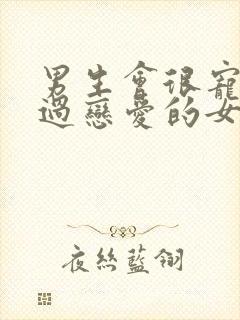 男生會很寵
過戀愛的女
夜絲藍翎